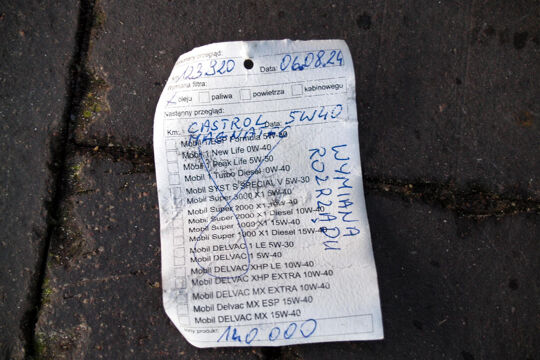 przegląd:
123.920 Data: 06.08.24
Wymiana filtra:
oleju paliwa powietrza kabinowego
Następny przegląd:
Km: Data:
CASTROL 5W40
MAGNATEC
Mobil 1 ESP Formula 5W-30
Mobil 1 New Life 0W-40
Mobil 1 Peak Life 5W-50
Mobil 1 Turbo Diesel 0W-40
Mobil SYST S SPECIAL V 5W-30
Mobil Super 3000 X1 5W-40
Mobil Super 2000 X1 10W-40
Mobil Super 2000 X1 Diesel 10W-40
Mobil Super 1000 X1 15W-40
Mobil Super 1000 X1 Diesel 15W-40
Mobil DELVAC 1 LE 5W-30
Mobil DELVAC 1 5W-40
Mobil DELVAC XHP LE 10W-40
Mobil DELVAC XHP EXTRA 10W-40
Mobil Delvac MX EXTRA 10W-40
Mobil Delvac MX ESP 15W-40
Mobil DELVAC MX 15W-40
Inny produkt:
140.000
WYMIANA
ROZRZĄDU